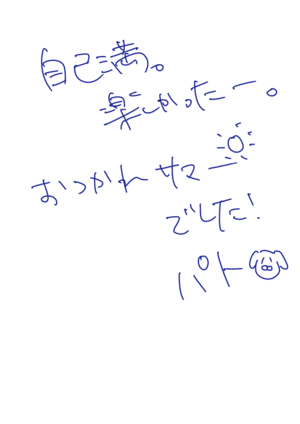 自己満。
楽しかったー。
おつかれサマー
でした！
パト